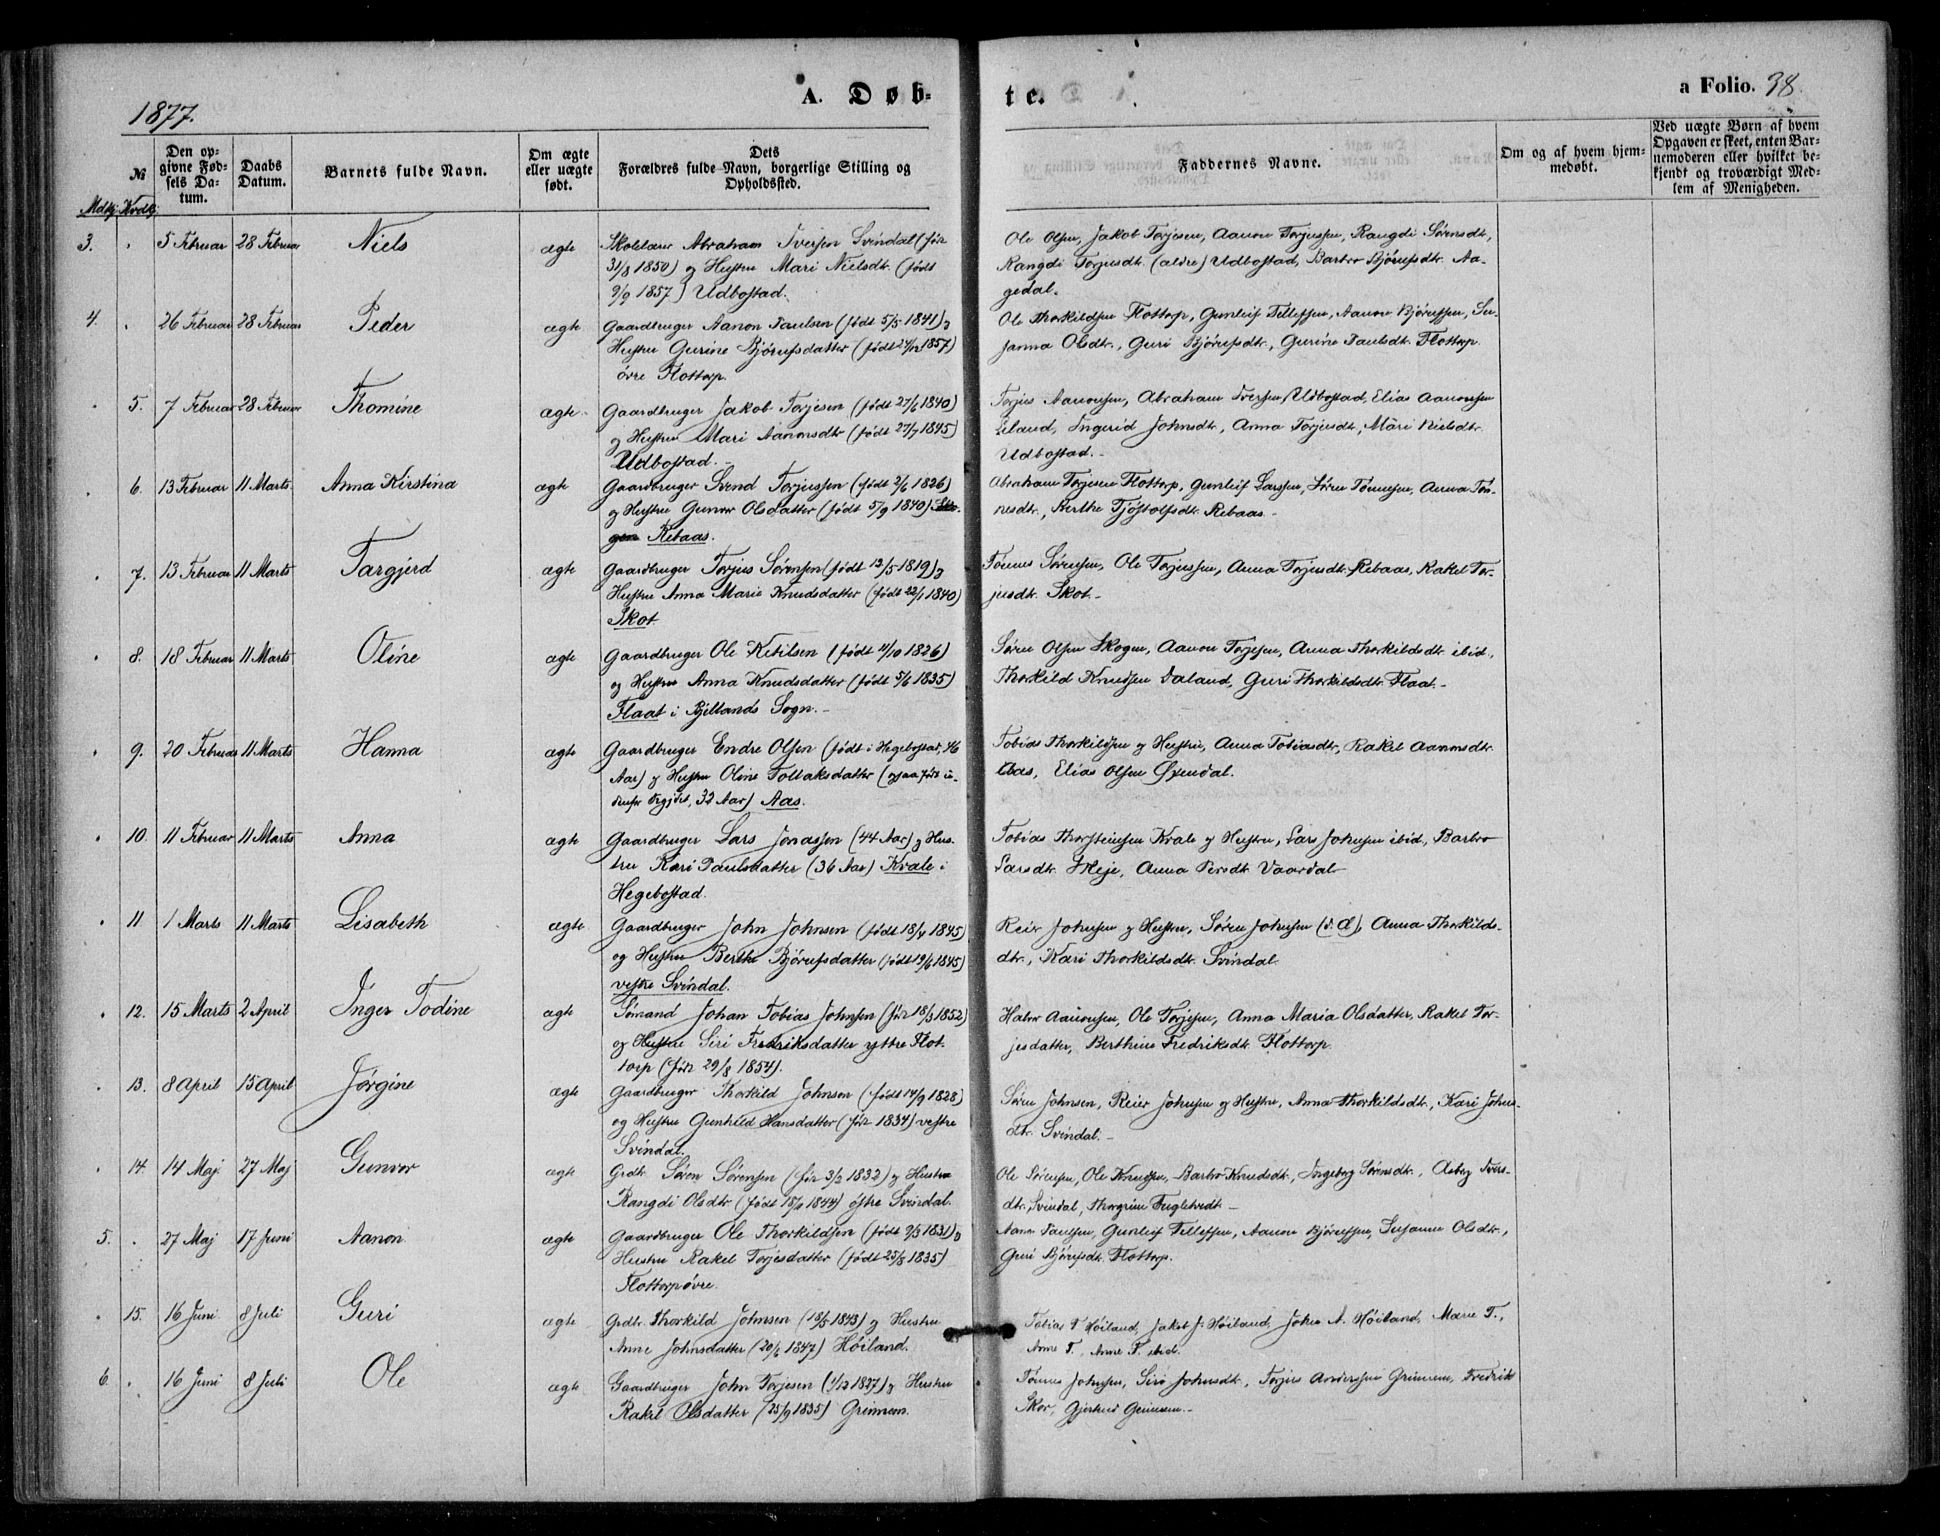 1877.
A. Døb-
te.
a Folio. 38.
№
Den op-
givne Fød-
sels Da-
tum.
Daabs
Datum.
Barnets fulde Navn.
Om ægte
eller uægte
født.
Dets
Forældres fulde Navn, borgerlige Stilling og
Opholdssted.
Faddernes Navne.
Om og af hvem hjem-
medøbt.
Ved uægte Børn af hvem
Opgaven er skeet, enten Bar-
nemoderen eller hvilket be-
kjendt og troværdigt Med-
lem af Menigheden.
Mdkj. Kvdkj.
3. 5 Februar 28 Februar Niels ægte Skolelærer Abraham Iversen Svindal (før
31/8 1850) og Hustru Mari Nielsdt. (født
9/9 1857) Udbostad.
Ole Olsen, Jakob Torjesen, Aanon Torjussen, Rangdi Sørensdt.,
Rangdi Torjusdt. (ældre) Udbostad, Barbro Bjørufsdt. Aa-
gedal.
4. 26 Februar 28 Februar Peder ægte Gaardbruger Aanon Paulsen (født 5/5 1841) og
Hustru Gurine Bjørufsdatter (født 24/12 1857)
øvre Flottorp.
Ole Thorkildsen Flottorp, Gunleif Tellefsen, Aanon Bjørufsen, Su-
sanna Olsdt., Guri Bjørufsdt., Gurine Paulsdt. Flottorp.
5. 7 Februar 28 Februar Thomine ægte Gaardbruger Jakob Torjesen (født 27/6 1840)
og Hustru Mari Aanonsdt. (født 27/7 1845)
Udbostad.
Torjus Aanonsen, Abraham Iversen Udbostad, Elias Aanonsen
Eiland, Ingerid Johnsdt., Anna Torjusdt., Mari Nielsdt.
Udbostad.
6. 13 Februar 11 Marts Anna Kirstina ægte Gaardbruger Svend Torjussen (født 2/6 1826)
og Hustru Gunvor Olsdatter (født 5/9 1840) Sko-
gen Rebaas.
Abraham Torjesen Flottorp, Gunleif Larssen, Søren Tønnesen, Anna Tøn-
nesdt., Berthe Tjøstolfsdt. Rebaas
7. 13 Februar 11 Marts Targjerd ægte Gaardbruger Torjus Sørensen (født 13/5 1819) og
Hustru Anna Marie Knudsdatter (født 22/1 1840)
Skot
Tønnes Sørensen, Ole Torjussen, Anna Torjusdt. Rebaas, Rakel Tor-
jusdt. Skot.
8. 18 Februar 11 Marts Oline ægte Gaardbruger Ole Ketilsen (født 11/10 1826)
og Hustru Anna Knudsdatter (født 5/6 1835)
Flaat i Bjellands Sogn.
Søren Olsen Skogen, Aanon Torjesen, Anna Thorkildsdt. ibid.,
Thorkild Knudsen Faland, Guri Thorkildsdt. Flaat.
9. 20 Februar 11 Marts Hanna ægte Gaardbruger Endre Olsen (født i Hegebostad, 46
Aar) og Hustru Oline Tollaksdatter (ogsaa før in-
denfor Prgjdet, 32 Aar) Aas.
Tobias Thorkildsen og Hustru, Anna Tobiasdt., Rakel Aanonsdt.
Aas, Elias Olsen Øxendal.
10. 11 Februar 11 Marts Anna ægte Gaardbruger Lars Jonassen (44 Aar) og Hus-
tru Kari Paulsdatter (36 Aar) Kvale i
Hegebostad.
Tobias Thorsteinsen Kvale og Hustru, Lars Johnsen ibid., Barbro
Larsdt. Skeje, Anna Persdt. Vaardal
11. 1 Marts 11 Marts Lisabeth ægte Gaardbruger John Johnsen (født 18/4 1845)
og Hustru Berthe Bjørufsdatter (født 19/6 1845)
vestre Svindal.
Reier Johnsen og Hustru, Søren Johnsen (d. Æ), Anna Thorkilds-
dt., Kari Thorkildsdt. Svindal
12. 15 Marts 2 April Inger Todine ægte Sømand Johan Tobias Johnsen (før 18/3 1852)
og Hustru Siri Fredriksdatter yttre Flot-
torp (før 29/8 1854).
Halvor Aanonsen, Ole Torjesen, Anna Maria Olsdatter, Rakel Tor-
jesdatter, Berthine Fredriksdt. Flottorp.
13. 8 April 15 April Jørgine ægte Gaardbruger Thorkild Johnsen (født 14/9 1828)
og Hustru Gunhild Hansdatter (før 1834) vestre
Svindal.
Søren Johnsen, Reier Johnsen og Hustru, Anna Thorkildsdt., Kari Johns-
dt. Svindal.
14. 14 Maj 27 Maj Gunvor ægte Grdbr. Søren Sørensen (før 3/2 1832) og Hustru
Rangdi Olsdtr (født 18/1 1844) østre Svindal.
Ole Sørensen, Ole Knudsen, Barbro Knudsdt., Ingeborg Sørensdt., Asbor Ivers-
dtr. Svindal, Thorgrim Fuglestvedt
5. 27 Maj 17 Juni Aanon ægte Gaardbruger Ole Thorkildsen (født 9/3 1831) og
Hustru Rakel Torjesdatter (født 25/8 1835)
Flottorp øvre.
Aanon Paulsen, Gunleif Tellefsen, Aanon Bjørufsen, Susanna Olsdtr.,
Guri Bjørufsdt. Flottorp.
15. 16 Juni 8 Juli Guri ægte Grdbr. Thorkild Johnsen (18/5 1843) og Hustru
Anne Johnsdatter (20/6 1847) Høiland.
Tobias T Høiland, Jakob J. Høiland, John A. Høiland, Marie T.,
Anne T., Anne T. ibid.
6. 16 Juni 8 Juli Ole ægte Gaardbruger John Torjesen (1/12 1827) og Hustru
Rakel Olsdatter (25/9 1835) Grimnem.
Tønnes Johnsen, Siri Johnsdt., Torjus Anderssen Grimnem, Fredrik
Skov, Gjertrud Grimnem.